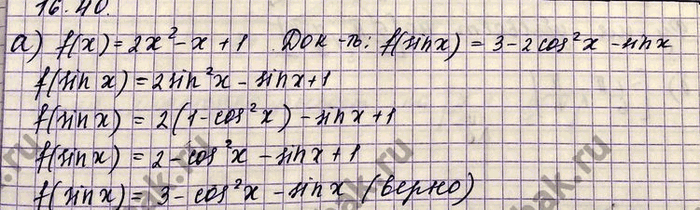 16.40.
а) f(x) = 2x² - x + 1 Док-ть: f(sinx) = 3 - 2cos²x - sinx
f(sin x) = 2sin²x - sinx + 1
f(sinx) = 2(1 - cos²x) - sinx + 1
f(sinx) = 2 - cos²x - sinx + 1
f(sinx) = 3 - cos²x - sinx (верно)